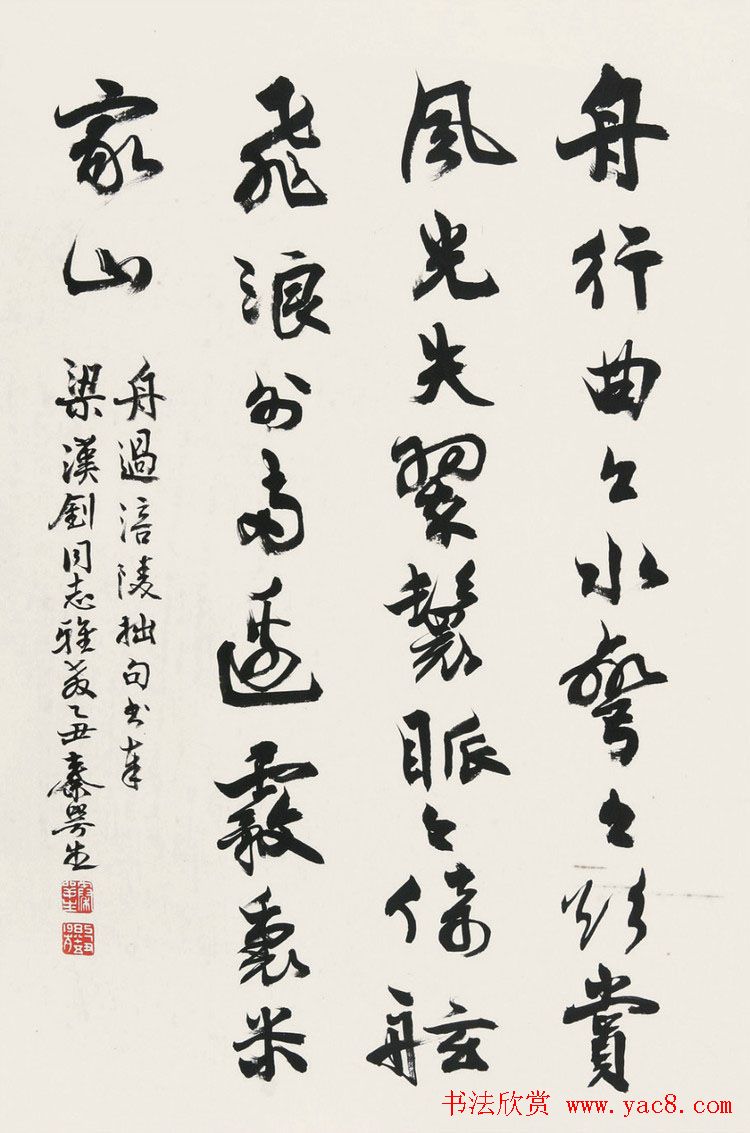 舟行曲々水彎々欣賞
風光失翠鬟脈々倚舷
飛浪外雨邊霧裏米
家山
舟過涪陵拙句書奉
梁漢釗同志雅教乙丑秦咢生
书法欣赏 www.yac8.com